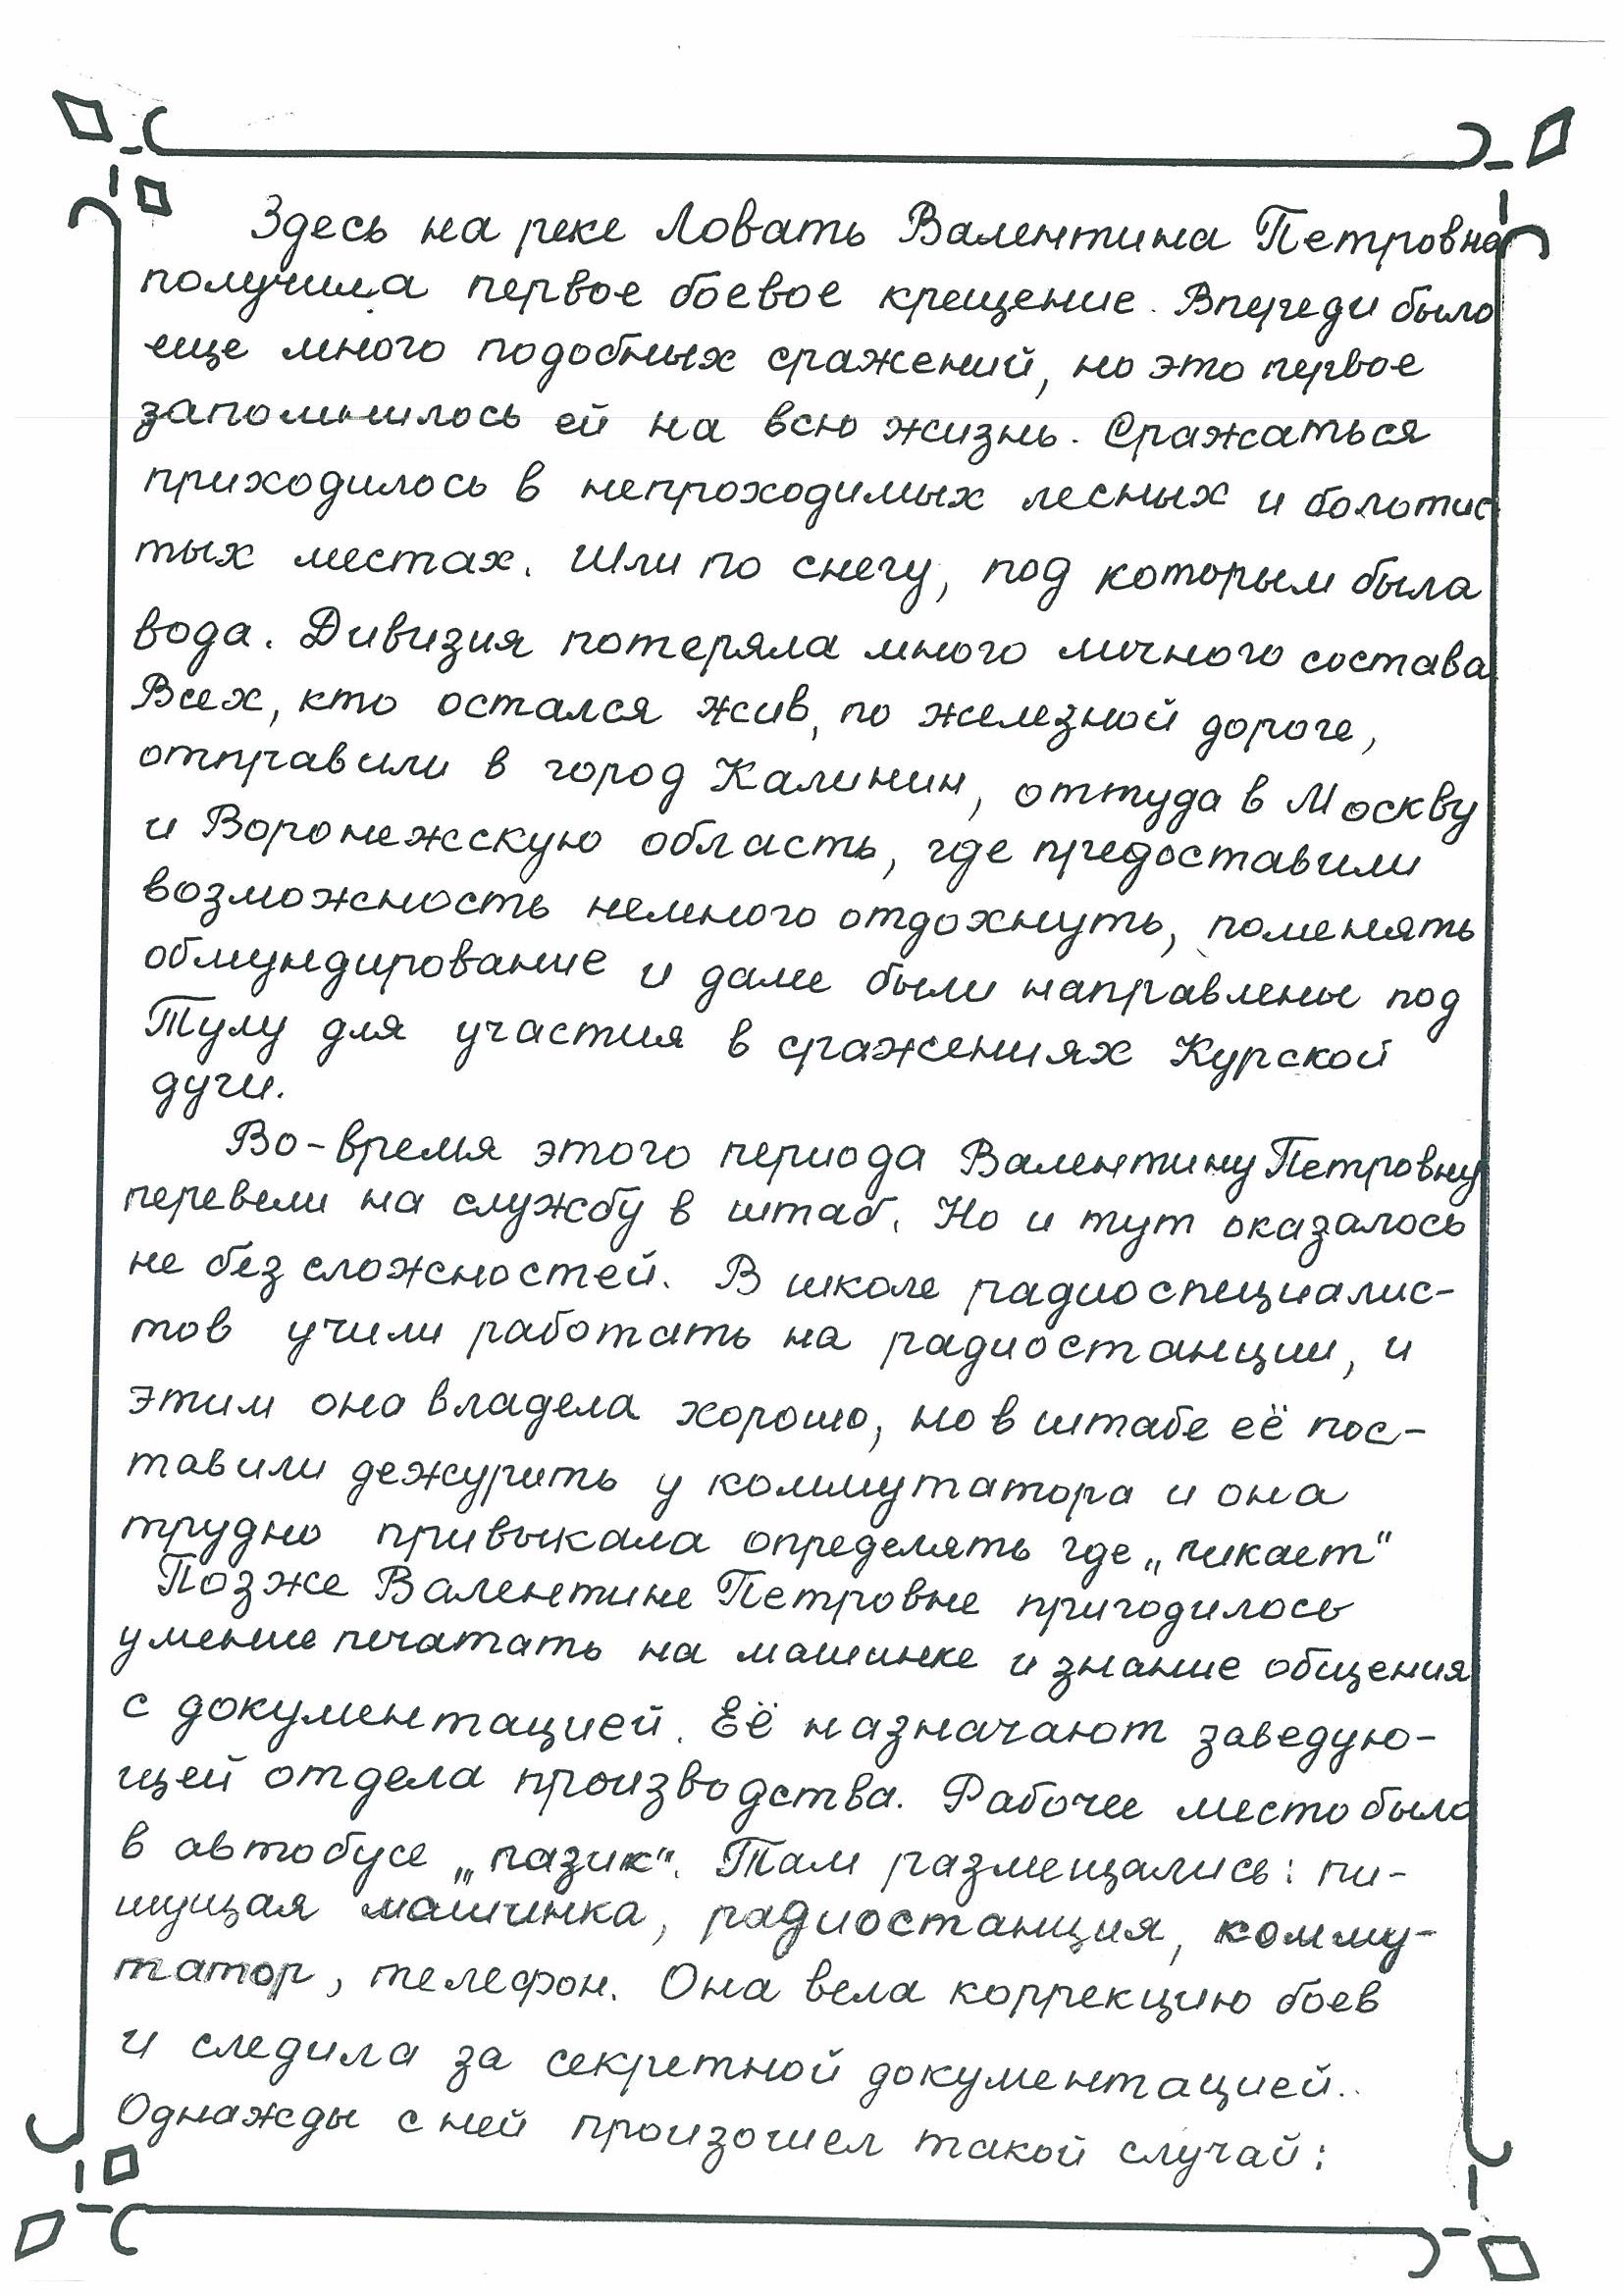 Здесь на реке Ловать Валентина Петровна
получила первое боевое крещение. Впереди было
еще много подобных сражений, но это первое
запомнилось ей на всю жизнь. Сражаться
приходилось в непроходимых лесных и болотис
тых местах. Шли по снегу, под которым была
вода. Дивизия потеряла много личного состава
Всех, кто остался жив, по железной дороге,
отправили в город Калинин, оттуда в Москву
и Воронежскую область, где предоставили
возможность немного отдохнуть, поменять
обмундирование и дале были направлены под
Тулу для участия в сражениях Курской
дуги.
Во-время этого периода Валентину Петровну
перевели на службу в штаб. Но и тут оказалось
не без сложностей. В школе радиоспециалис-
тов учили работать на радиостанции, и
этим она владела хорошо, но в штабе её пос-
тавили дежурить у коммутатора и она
трудно привыкала определять где „пикает"
Позже Валентине Петровне пригодилось
умение печатать на машинке и знание общения
с документацией. Её назначают заведую-
щей отдела производства. Рабочее место было
в автобусе „пазик". Там размещались: пи-
шущая машинка, радиостанция, комму-
татор, телефон. Она вела коррекцию боев
и следила за секретной документацией..
Однажды с ней произошел такой случай: